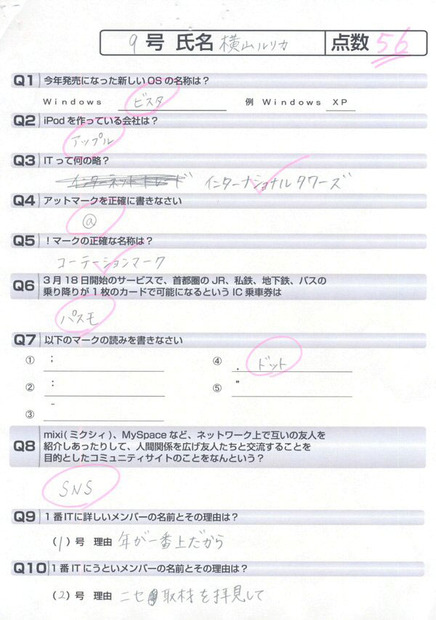 9 号 氏名 横山ルリカ 点数 56
Q1 今年発売になった新しいOSの名称は？
Windows ビスタ 例 Windows XP
Q2 iPodを作っている会社は？
アップル
Q3 ITって何の略？
インターナショナルタワーズ
Q4 アットマークを正確に書きなさい
@
Q5 ！マークの正確な名称は？
コーテーションマーク
Q6 3月18日開始のサービスで、首都圏のJR、私鉄、地下鉄、バスの
乗り降りが1枚のカードで可能になるというIC乗車券は
パスモ
Q7 以下のマークの読みを書きなさい
① ；
④ . ドット
② ：
⑤ "
③ –
Q8 mixi(ミクシィ)、MySpaceなど、ネットワーク上で互いの友人を
紹介しあったりして、人間関係を広げ友人たちと交流することを
目的としたコミュニティサイトのことをなんという？
SNS
Q9 1番ITに詳しいメンバーの名前とその理由は？
(1)号 理由 年が一番上だから
Q10 1番ITにうといメンバーの名前とその理由は？
(2)号 理由 ニセ取材を拝見して